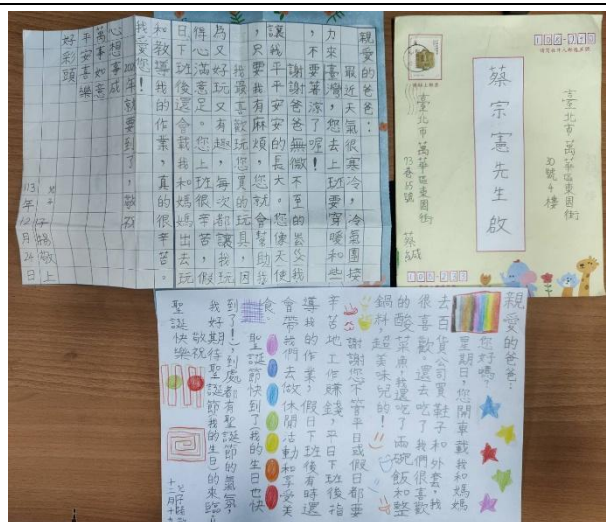 親愛的爸爸:
最近天氣很寒冷,冷氣團接
力來臺灣,您去上班要穿暖和些
,不要著涼了喔!
謝謝爸爸無微不至的養育我
讓我平平安安的長大。您像天使
,只要我有麻煩,您就會幫助我
我最喜歡玩您買的玩具,因
為又好玩又有趣,每次都讓我玩
得心滿意足。您上班很辛苦,假
日下班後還會載我和媽媽出去玩
和教導我的作業,真的很辛苦。
我愛您!
年就要到了,敬祝
心想事成
萬事如意
平安喜樂
好彩頭
敬上
113年12月24日
蔡宗憲先生啟
臺北市萬華區東園街
30號4樓
臺北市萬華區東園街
73巷65號
蔡緘
親愛的爸爸:
您好嗎?
星期日,您開車載我和媽媽
去百貨公司買鞋子和外套,我
很喜歡。還去吃了我們很喜歡
的酸菜魚,我還吃了兩碗飯和整
鍋料,超美味兒的!
謝謝您不管平日或假日都要
辛苦地工作賺錢,平日下班後指
導我的作業,假日下班後有時還
會帶我們去做休閒活動和享受美
食。
聖誕節快到了(我的生日也快
到了!),到處都有聖誕節的氣氛,
我好期待聖誕節(我的生日)的來臨!
敬祝
聖誕快樂